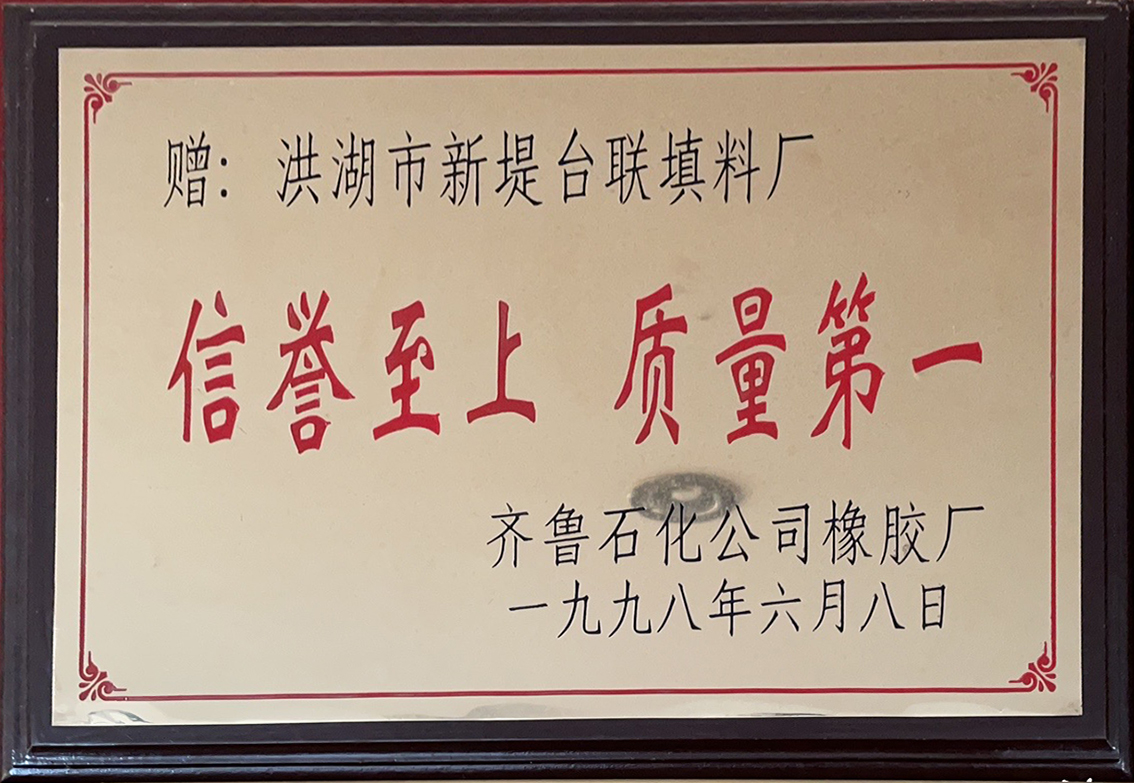 赠：洪湖市新堤台联填料厂
信誉至上 质量第一
齐鲁石化公司橡胶厂
一九九八年六月八日